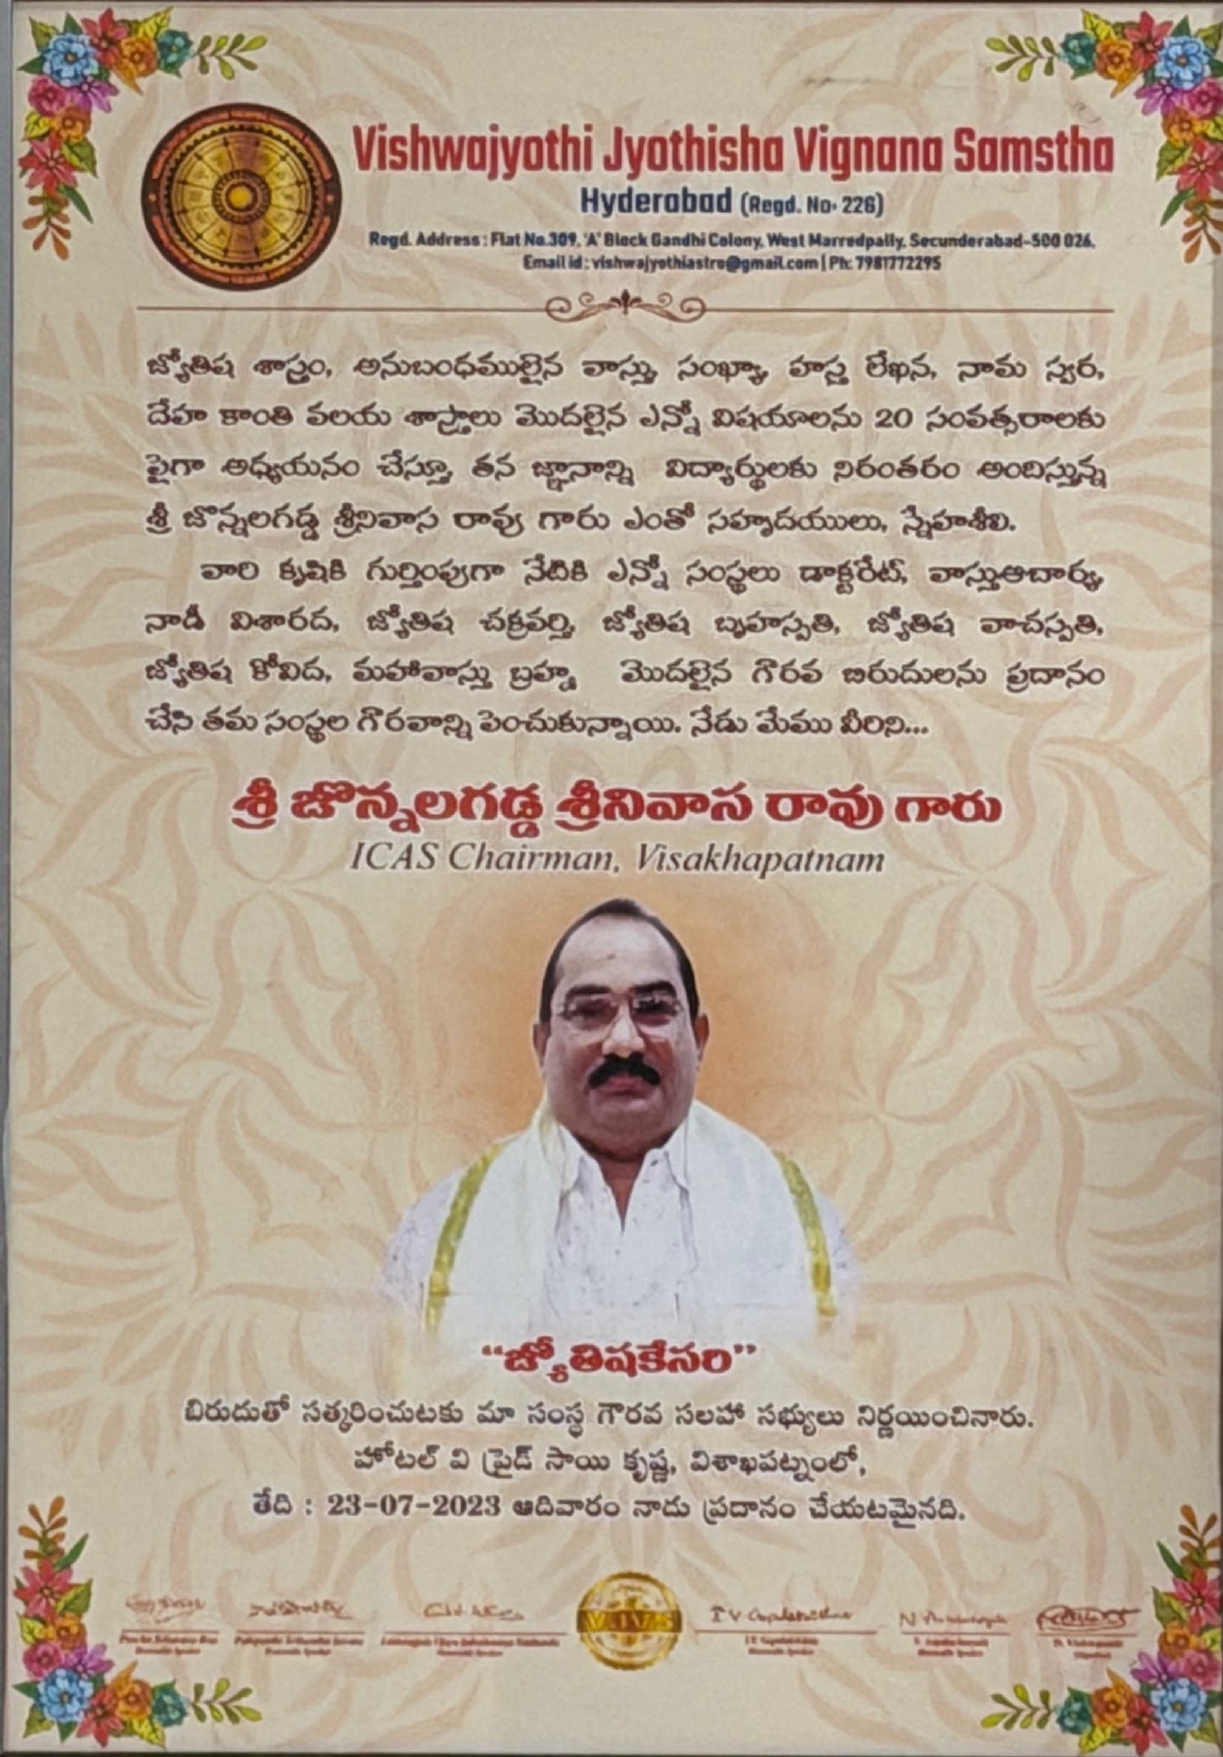 Vishwajyothi Jyothisha Vignana Samstha
Hyderabad (Regd. No. 226)
Regd. Address : Flat No.309, 'A' Block Gandhi Colony, West Marredpally, Secunderabad-500 026.
Email id : vishwajyothiastro@gmail.com | Ph: 7981772295
జ్యోతిష శాస్త్రం, అనుబంధములైన వాస్తు, సంఖ్యా, హస్త లేఖన, నామ స్వర,
దేహ కాంతి వలయ శాస్త్రాలు మొదలైన ఎన్నో విషయాలను 20 సంవత్సరాలకు
పైగా అధ్యయనం చేస్తూ, తన జ్ఞానాన్ని విద్యార్థులకు నిరంతరం అందిస్తున్న
శ్రీ జొన్నలగడ్డ శ్రీనివాస రావు గారు ఎంతో సహృదయులు, స్నేహశీలి.
వారి కృషికి గుర్తింపుగా నేటికి ఎన్నో సంస్థలు డాక్టరేట్, వాస్తుఆచార్య,
నాడీ విశారద, జ్యోతిష చక్రవర్తి, జ్యోతిష బృహస్పతి, జ్యోతిష వాచస్పతి,
జ్యోతిష కోవిద, మహావాస్తు బ్రహ్మ మొదలైన గౌరవ బిరుదులను ప్రదానం
చేసి తమ సంస్థల గౌరవాన్ని పెంచుకున్నాయి. నేడు మేము వీరిని...
శ్రీ జొన్నలగడ్డ శ్రీనివాస రావు గారు
ICAS Chairman, Visakhapatnam
“జ్యోతిషకేసరి”
బిరుదుతో సత్కరించుటకు మా సంస్థ గౌరవ సలహా సభ్యులు నిర్ణయించినారు.
హోటల్ వి ప్రైడ్ సాయి కృష్ణ, విశాఖపట్నంలో,
తేది : 23-07-2023 ఆదివారం నాడు ప్రదానం చేయటమైనది.